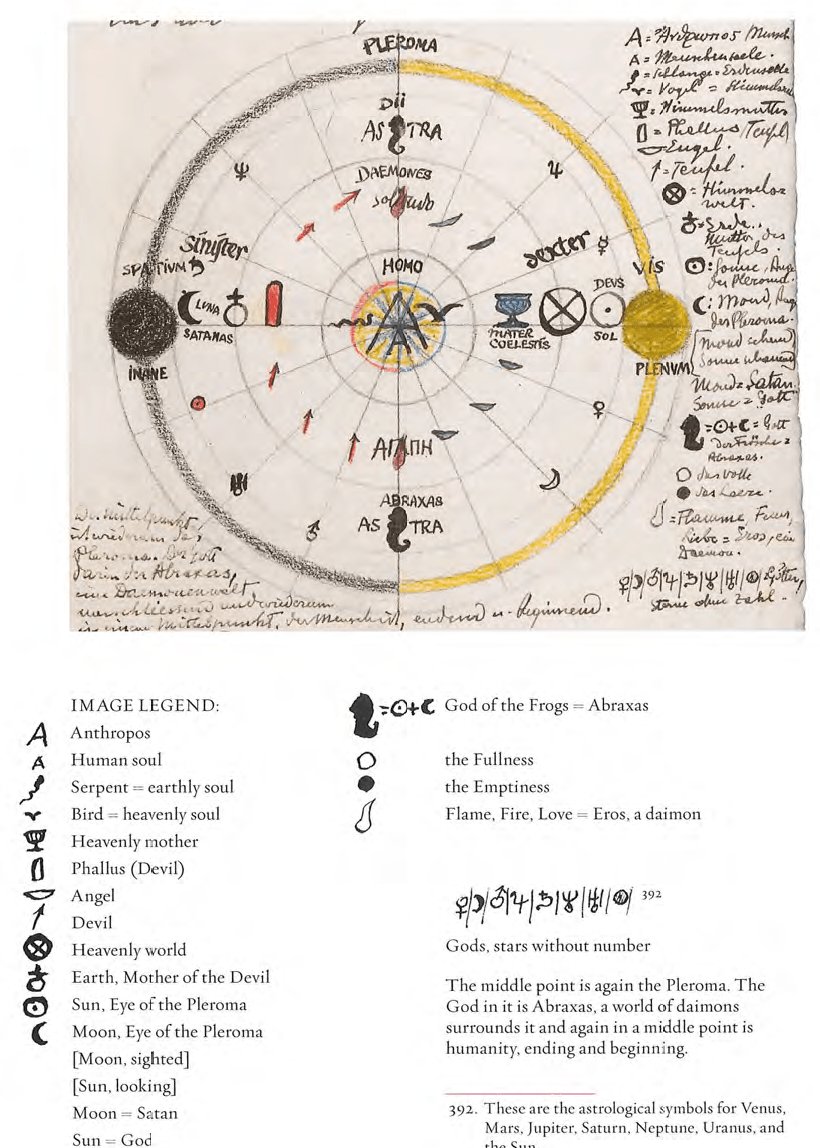 PLEROMA
Dii
ASTRA
DAEMONES
sinister
dexter
SPATIUM
VIS
HOMO
DEVS
LUNA
SATANAS
MATER
COELESTIS
SOL
INANE
PLENVM
ABRAXAS
ASTRA
A = Mensch
A = Menschenseele.
= Schlange = Erdenseele
= Vogel =
= Phallus (Teufel)
= Engel.
= Teufel.
= Himmels
welt.
Mutter des
Teufels.
= Sonne, Auge
des Pleroma.
: Mond, Aug
des Pleroma.
Mond = Satan
Sonne = Gott
= Gott
der Frösche =
Abraxas.
das Volle
= Flamme, Feuer,
Liebe = Eros, ein
Daemon.
Götter,
Sterne ohne Zahl.
Der Mittelpunkt
ist wiederum das
Pleroma. Der Gott
darin der Abraxas,
eine Daemonenwelt
in einem Mittelpunkt, der Mensch ist, endend u. beginnend.
IMAGE LEGEND:
A Anthropos
A Human soul
Serpent = earthly soul
Bird = heavenly soul
Heavenly mother
Phallus (Devil)
Angel
Devil
Heavenly world
Earth, Mother of the Devil
Sun, Eye of the Pleroma
Moon, Eye of the Pleroma
[Moon, sighted]
[Sun, looking]
Moon = Satan
Sun = God
God of the Frogs = Abraxas
the Fullness
the Emptiness
Flame, Fire, Love = Eros, a daimon
392
Gods, stars without number
The middle point is again the Pleroma. The
God in it is Abraxas, a world of daimons
surrounds it and again in a middle point is
humanity, ending and beginning.
392. These are the astrological symbols for Venus,
Mars, Jupiter, Saturn, Neptune, Uranus, and
the Sun